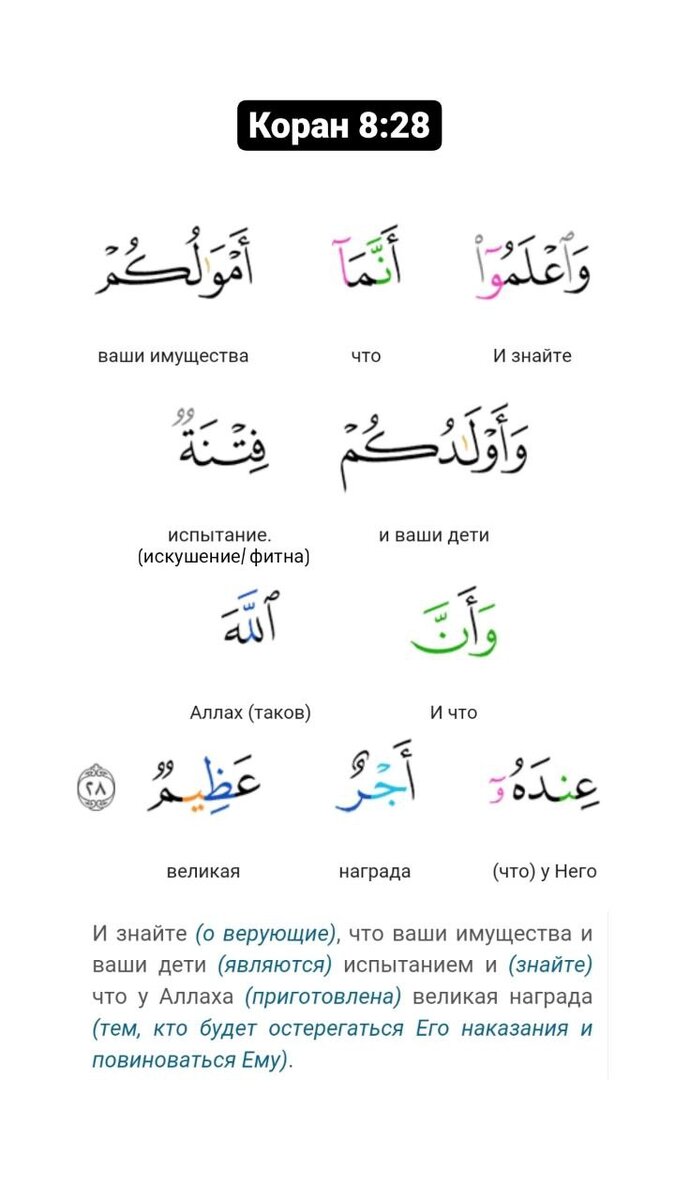 Коран 8:28
وَٱعْلَمُوٓا۟ أَنَّمَآ أَمْوَٰلُكُمْ
ваши имущества что И знайте
وَأَوْلَـٰدُكُمْ فِتْنَةٌ
испытание. и ваши дети
(искушение/фитна)
وَأَنَّ ٱللَّهَ
Аллах (таков) И что
عِندَهُۥٓ أَجْرٌ عَظِيمٌ ٢٨
великая награда (что) у Него
И знайте (о верующие), что ваши имущества и
ваши дети (являются) испытанием и (знайте)
что у Аллаха (приготовлена) великая награда
(тем, кто будет остерегаться Его наказания и
повиноваться Ему).